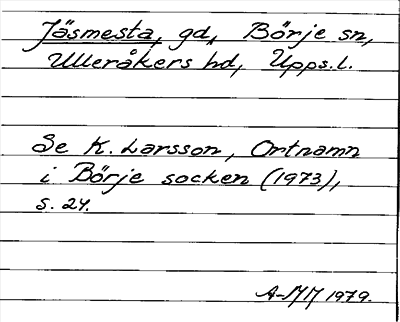 Jäsmesta, gd, Börje sn,
Ulleråkers hd, Upps.l.
Se K. Larsson, Ortnamn
i Börje socken (1973),
s. 24.
A-MM 1979.